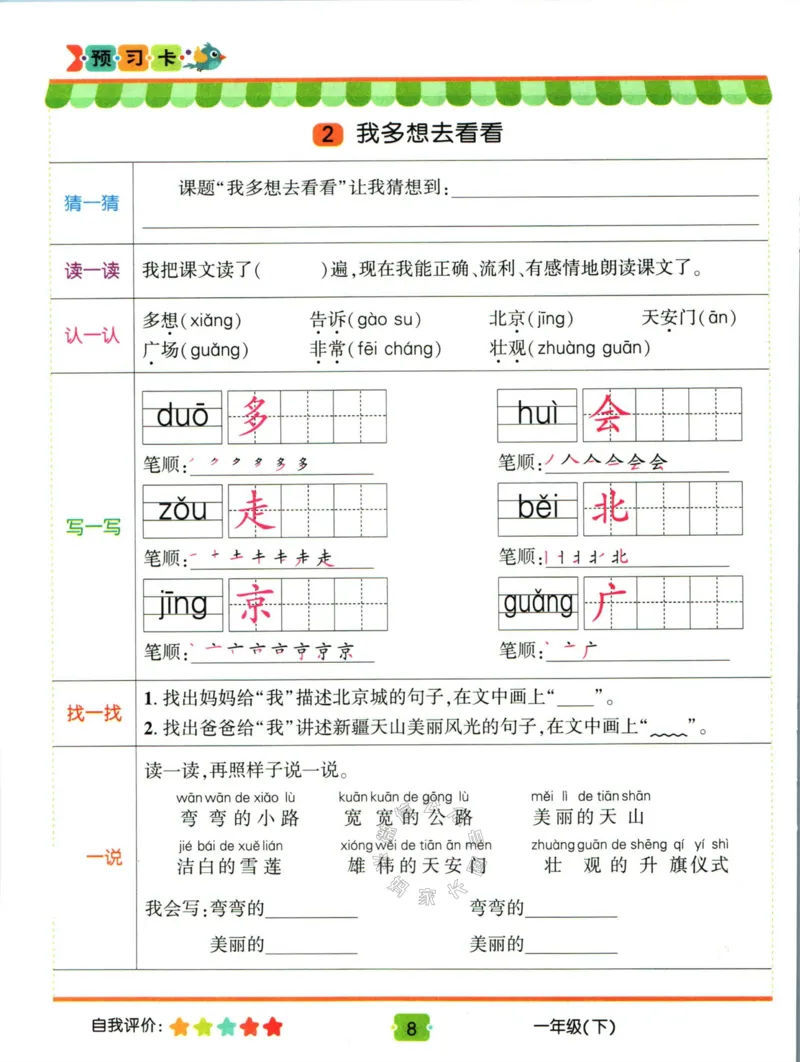 预习卡
2 我多想去看看
猜一猜
课题“我多想去看看”让我猜想到:
读一读
我把课文读了( )遍,现在我能正确、流利、有感情地朗读课文了。
认一认
多想(xiǎng) 告诉(gào su) 北京(jīng) 天安门(ān)
广场(guǎng) 非常(fēi cháng) 壮观(zhuàng guān)
写一写
duō 多 huì 会
笔顺: 笔顺:
zǒu 走 běi 北
笔顺: 笔顺:
jīng 京 guǎng 广
笔顺: 笔顺:
找一找
1. 找出妈妈给“我”描述北京城的句子,在文中画上“____”。
2. 找出爸爸给“我”讲述新疆天山美丽风光的句子,在文中画上“﹏﹏”。
一说
读一读,再照样子说一说。
wān wān de xiǎo lù kuān kuān de gōng lù měi lì de tiān shān
弯弯的小路 宽宽的公路 美丽的天山
jié bái de xuě lián xióng wěi de tiān ān mén zhuàng guān de shēng qí yí shì
洁白的雪莲 雄伟的天安门 壮观的升旗仪式
我会写:弯弯的________ 弯弯的________
美丽的________ 美丽的________
自我评价: 8 一年级(下)